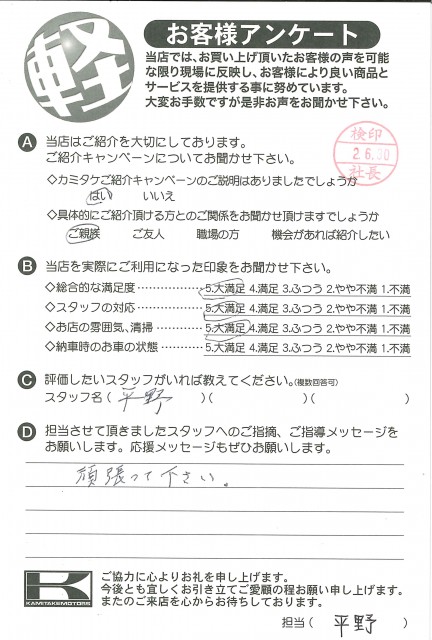 軽
お客様アンケート
当店では、お買い上げ頂いたお客様の声を可能
な限り現場に反映し、お客様により良い商品と
サービスを提供する事に努めています。
大変お手数ですが是非お声をお聞かせ下さい。
検印
2.6.30
社長
A 当店はご紹介を大切にしております。
ご紹介キャンペーンについてお聞かせ下さい。
◇カミタケご紹介キャンペーンのご説明はありましたでしょうか
はい いいえ
◇具体的にご紹介頂ける方とのご関係をお聞かせ頂けますでしょうか
ご親族 ご友人 職場の方 機会があれば紹介したい
B 当店を実際にご利用になった印象をお聞かせ下さい。
◇総合的な満足度……………5.大満足 4.満足 3.ふつう 2.やや不満 1.不満
◇スタッフの対応……………5.大満足 4.満足 3.ふつう 2.やや不満 1.不満
◇お店の雰囲気、清掃………5.大満足 4.満足 3.ふつう 2.やや不満 1.不満
◇納車時のお車の状態………5.大満足 4.満足 3.ふつう 2.やや不満 1.不満
C 評価したいスタッフがいれば教えてください。(複数回答可)
スタッフ名( 平野 )( )( )
D 担当させて頂きましたスタッフへのご指摘、ご指導メッセージを
お願いします。応援メッセージもぜひお願いします。
頑張って下さい。
K
KAMITAKEMOTORS
ご協力に心よりお礼を申し上げます。
今後とも宜しくお引き立てご愛顧の程お願い申し上げます。
またのご来店を心からお待ちしております。
担当( 平野 )